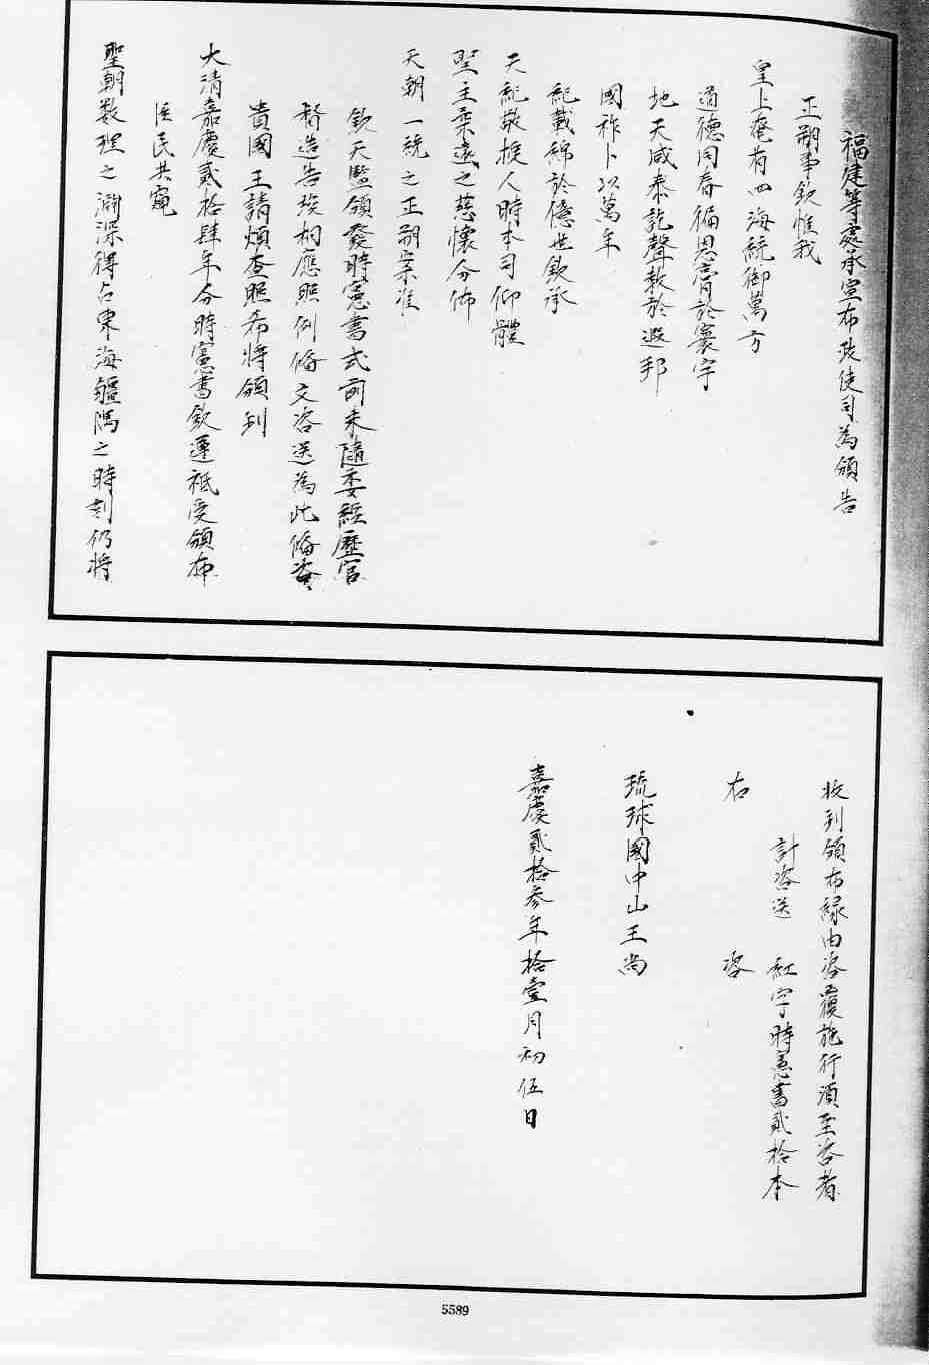 福建等處承宣布政使司為頒告
正朔事欽惟我
皇上奄有四海統御萬方
道德同春徧恩膏於寰宇
地天咸泰訖聲教於遐邦
國祚卜以萬年
紀載綿於億世欽承
天紀敬授人時本司仰體
聖主柔遠之慈懷分佈
天朝一統之正朔案准
欽天監頒發時憲書式前來隨委經歷官
督造告竣相應照例俻文咨送為此俻咨
貴國王請煩查照希將頒到
大清嘉慶貳拾肆年分時憲書欽遵祗受頒布
臣民共窺
聖朝数理之淵深得占東海疆隅之時刻仍將
收到頒布緣由咨覆施行須至咨者
計咨送 紅字時憲書貳拾本
右 咨
琉球國中山王尚
嘉慶貳拾參年拾壹月初伍日
5589